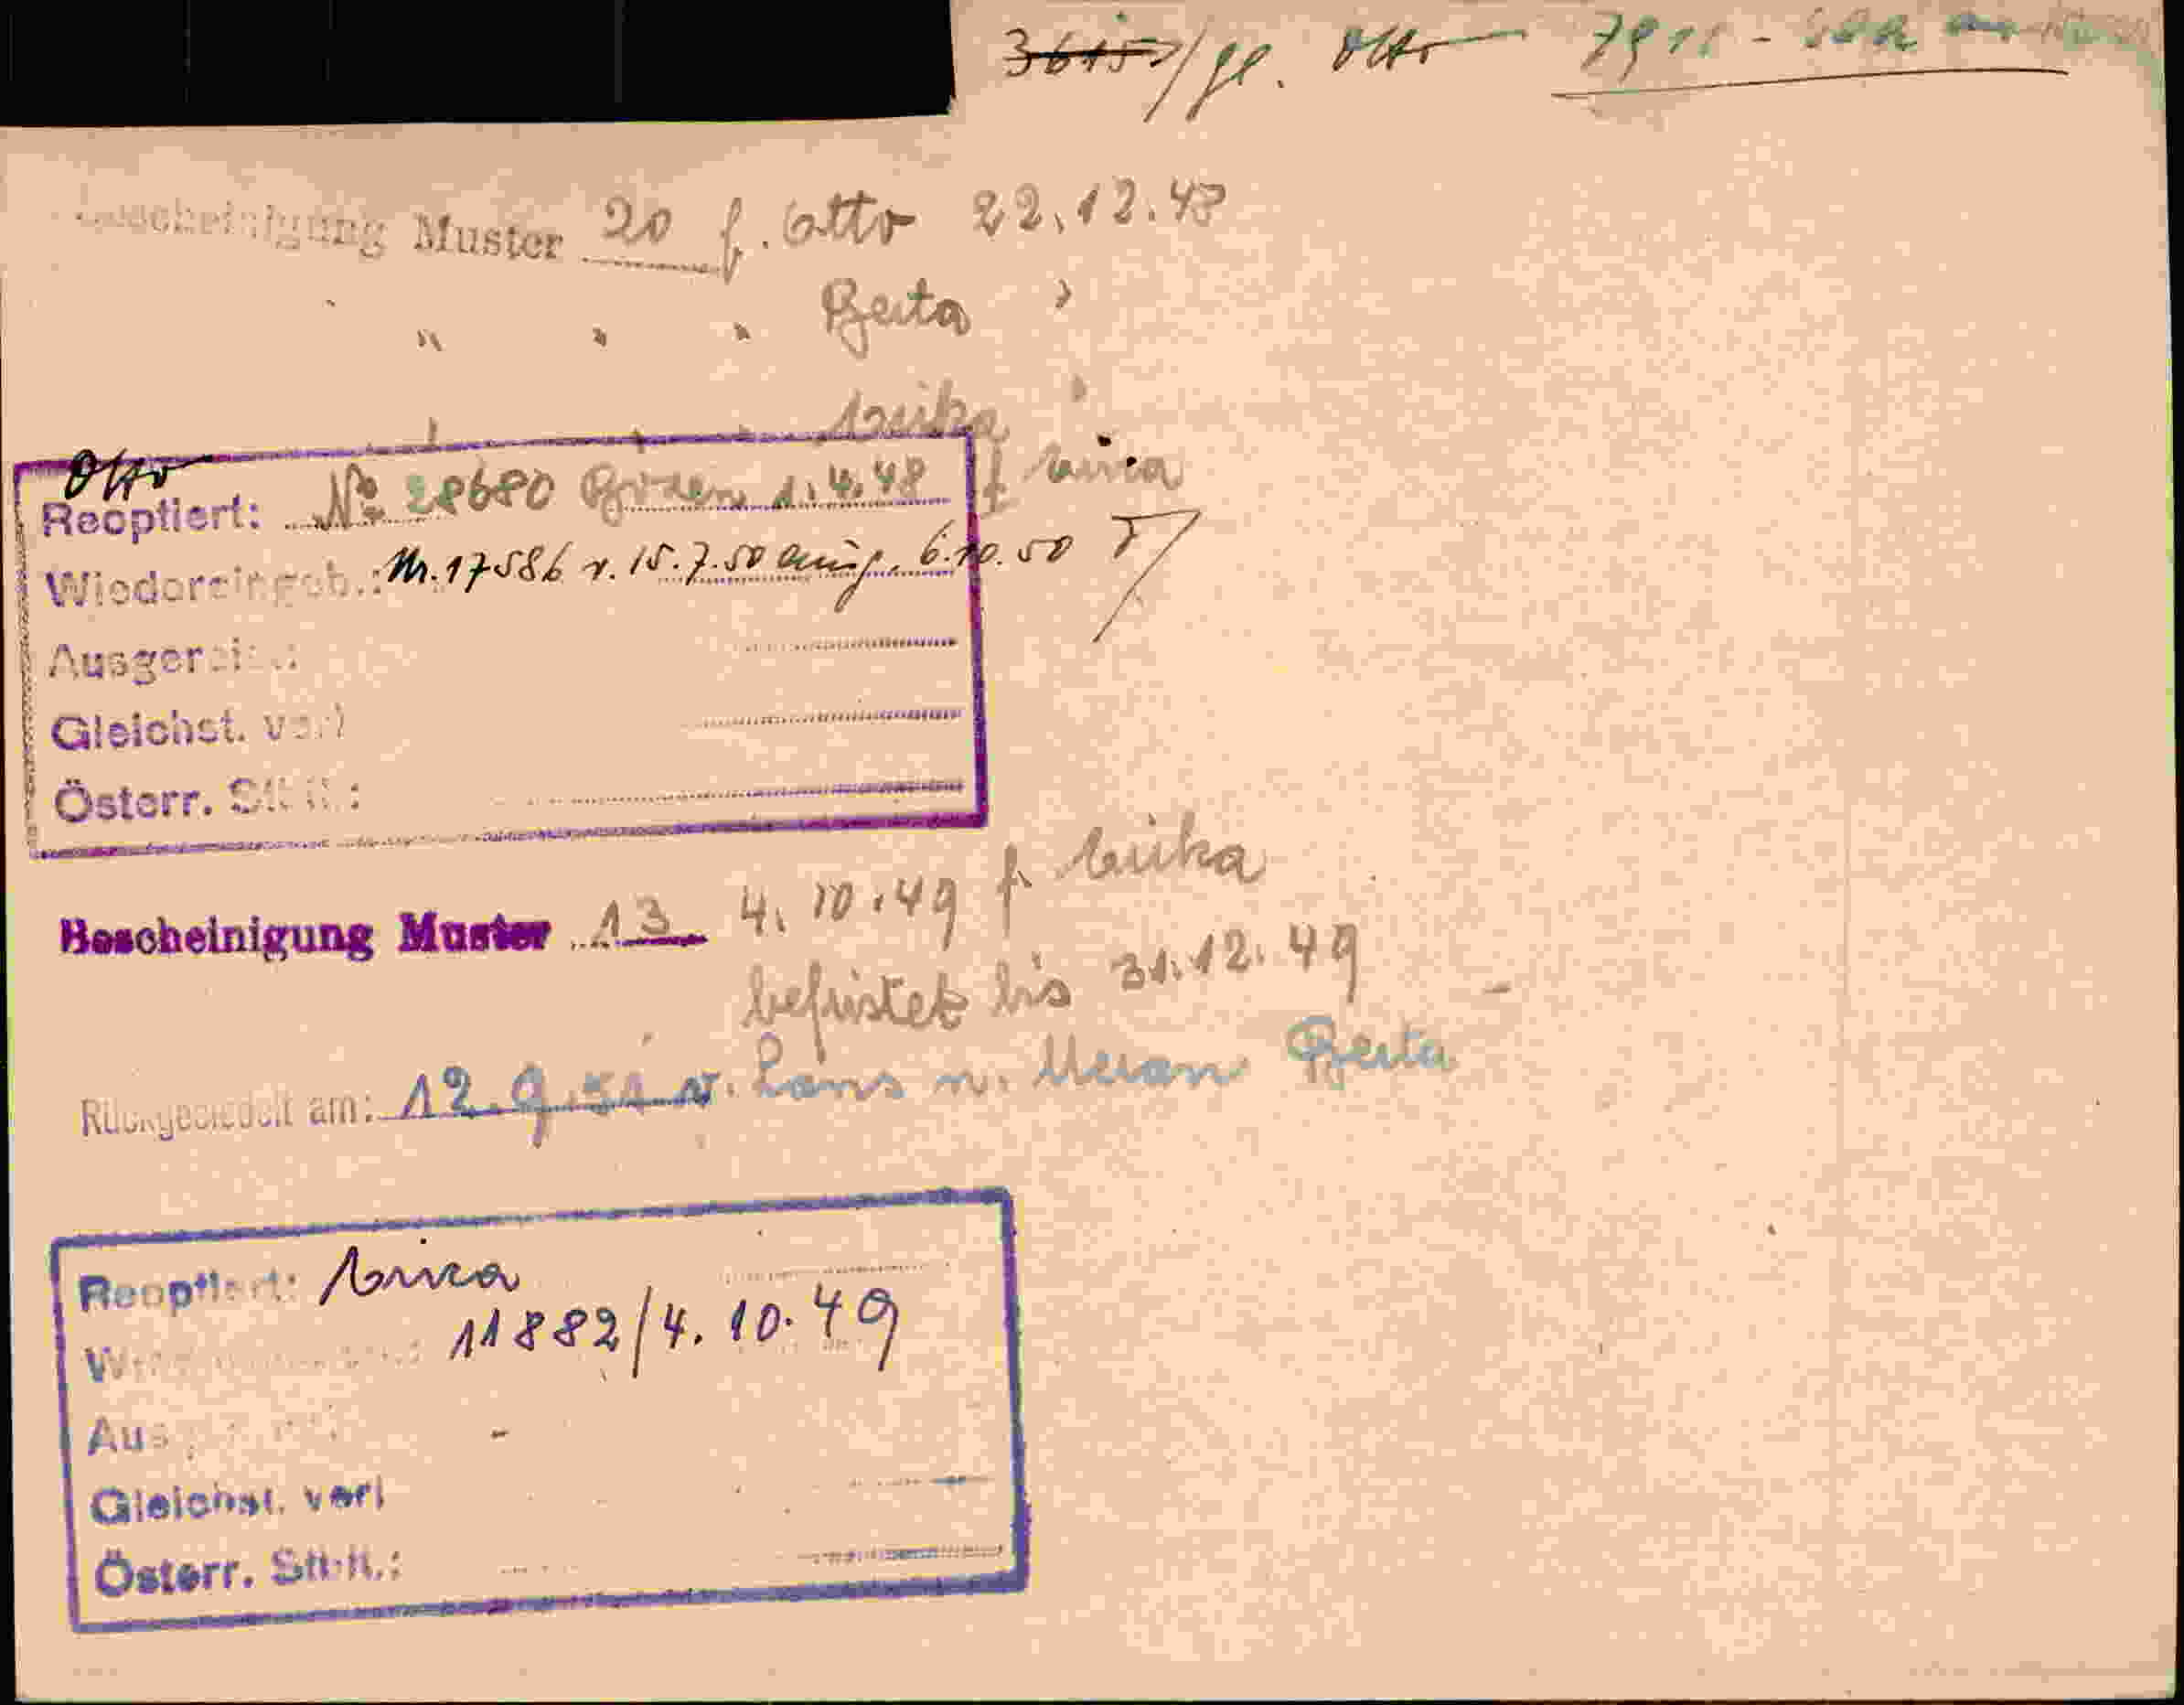 3615/gl. Otto 7911 -
Bescheinigung Muster 20 f. Otto 22.12.48
" " " Berta "
" " " Erika "
Otto
Reoptiert: No 28680 Bozen 1.4.48 f Erica
Wiedereingeb.: Nr. 17586 v. 15.7.50 6.10.50
Ausgereist.:
Gleichst. verl
Österr. Stb.:
Bescheinigung Muster 13 4.10.49 f. Erika
befristet bis 31.12.49
Rückgesiedelt am: 12.9.51 v. Lans n. Meran Berta
Reoptiert: Erica
11882/4.10.49
Gleichst. verl
Österr.